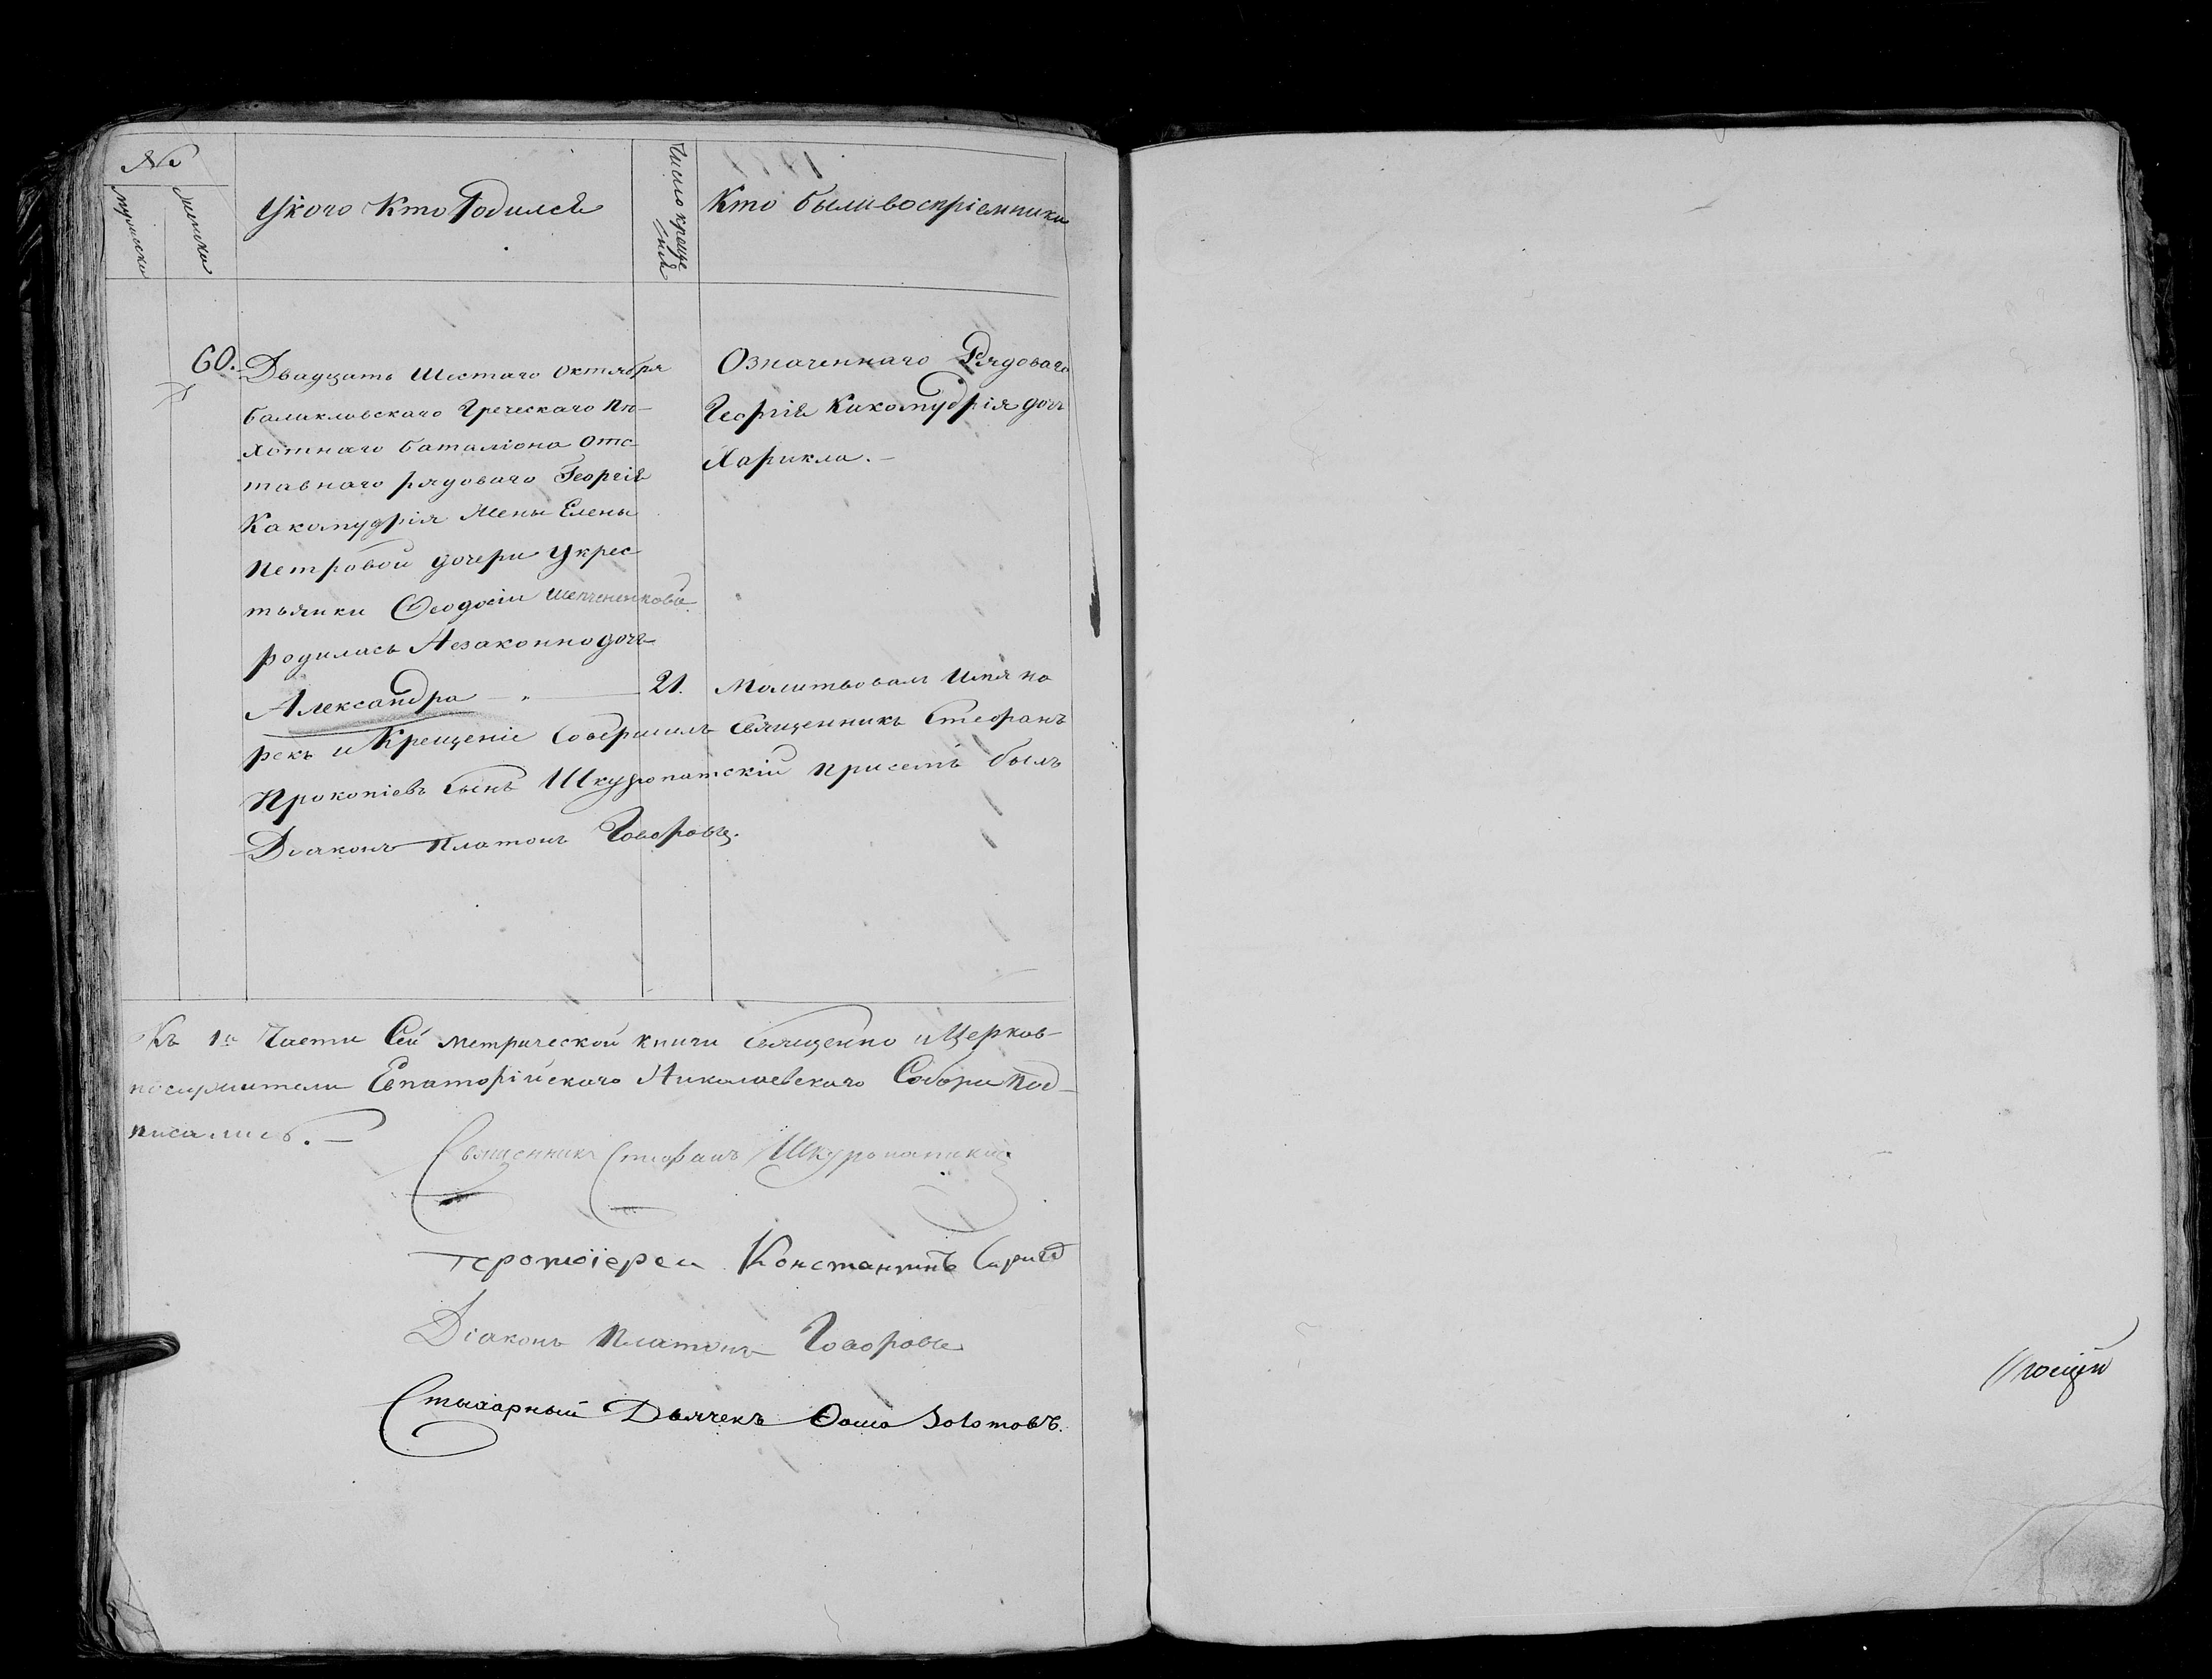 №
мужеска
женска
У кого кто родился
Число креще
ния
Кто были воспріемники
60.
Двадцать шестаго октября
балаклавскаго Греческаго пѣ-
хотнаго баталіона отс-
тавнаго рядоваго Георгія
Какомудрія жены Елены
Петровой дочери У крес
тьянки Ѳеодосіи
родилась Незаконно дочь
Александра — „ — 21.
Означеннаго Рядоваго
Георгія Какомудрія дочь
Харикла. —
Молитвовалъ имя на
рекъ и Крещеніе Совершилъ Священникъ Стефанъ
Прокопіевъ Сынъ Шкуропатскій при семъ былъ
Діаконъ Платонъ Говоровъ.
Къ 1й Части Сей метрической книги Священно и Церков-
нослужители Евпаторійскаго Николаевскаго Собора Под-
писались. —
Священникъ Стефанъ Шкуропатскій
Протоіерей Константинъ
Діаконъ Платонъ Говоровъ
Стихарный Дьячекъ Ѳома Золотовъ.